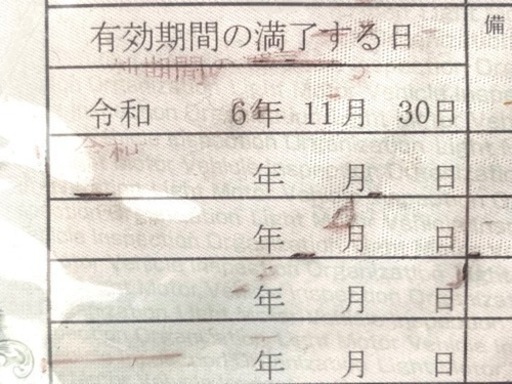 有効期間の満了する日
備
令和 6年 11月 30日
年 月 日
年 月 日
年 月 日
年 月 日